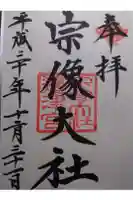 奉拝
宗像大社
平成二十年十二月三十一日